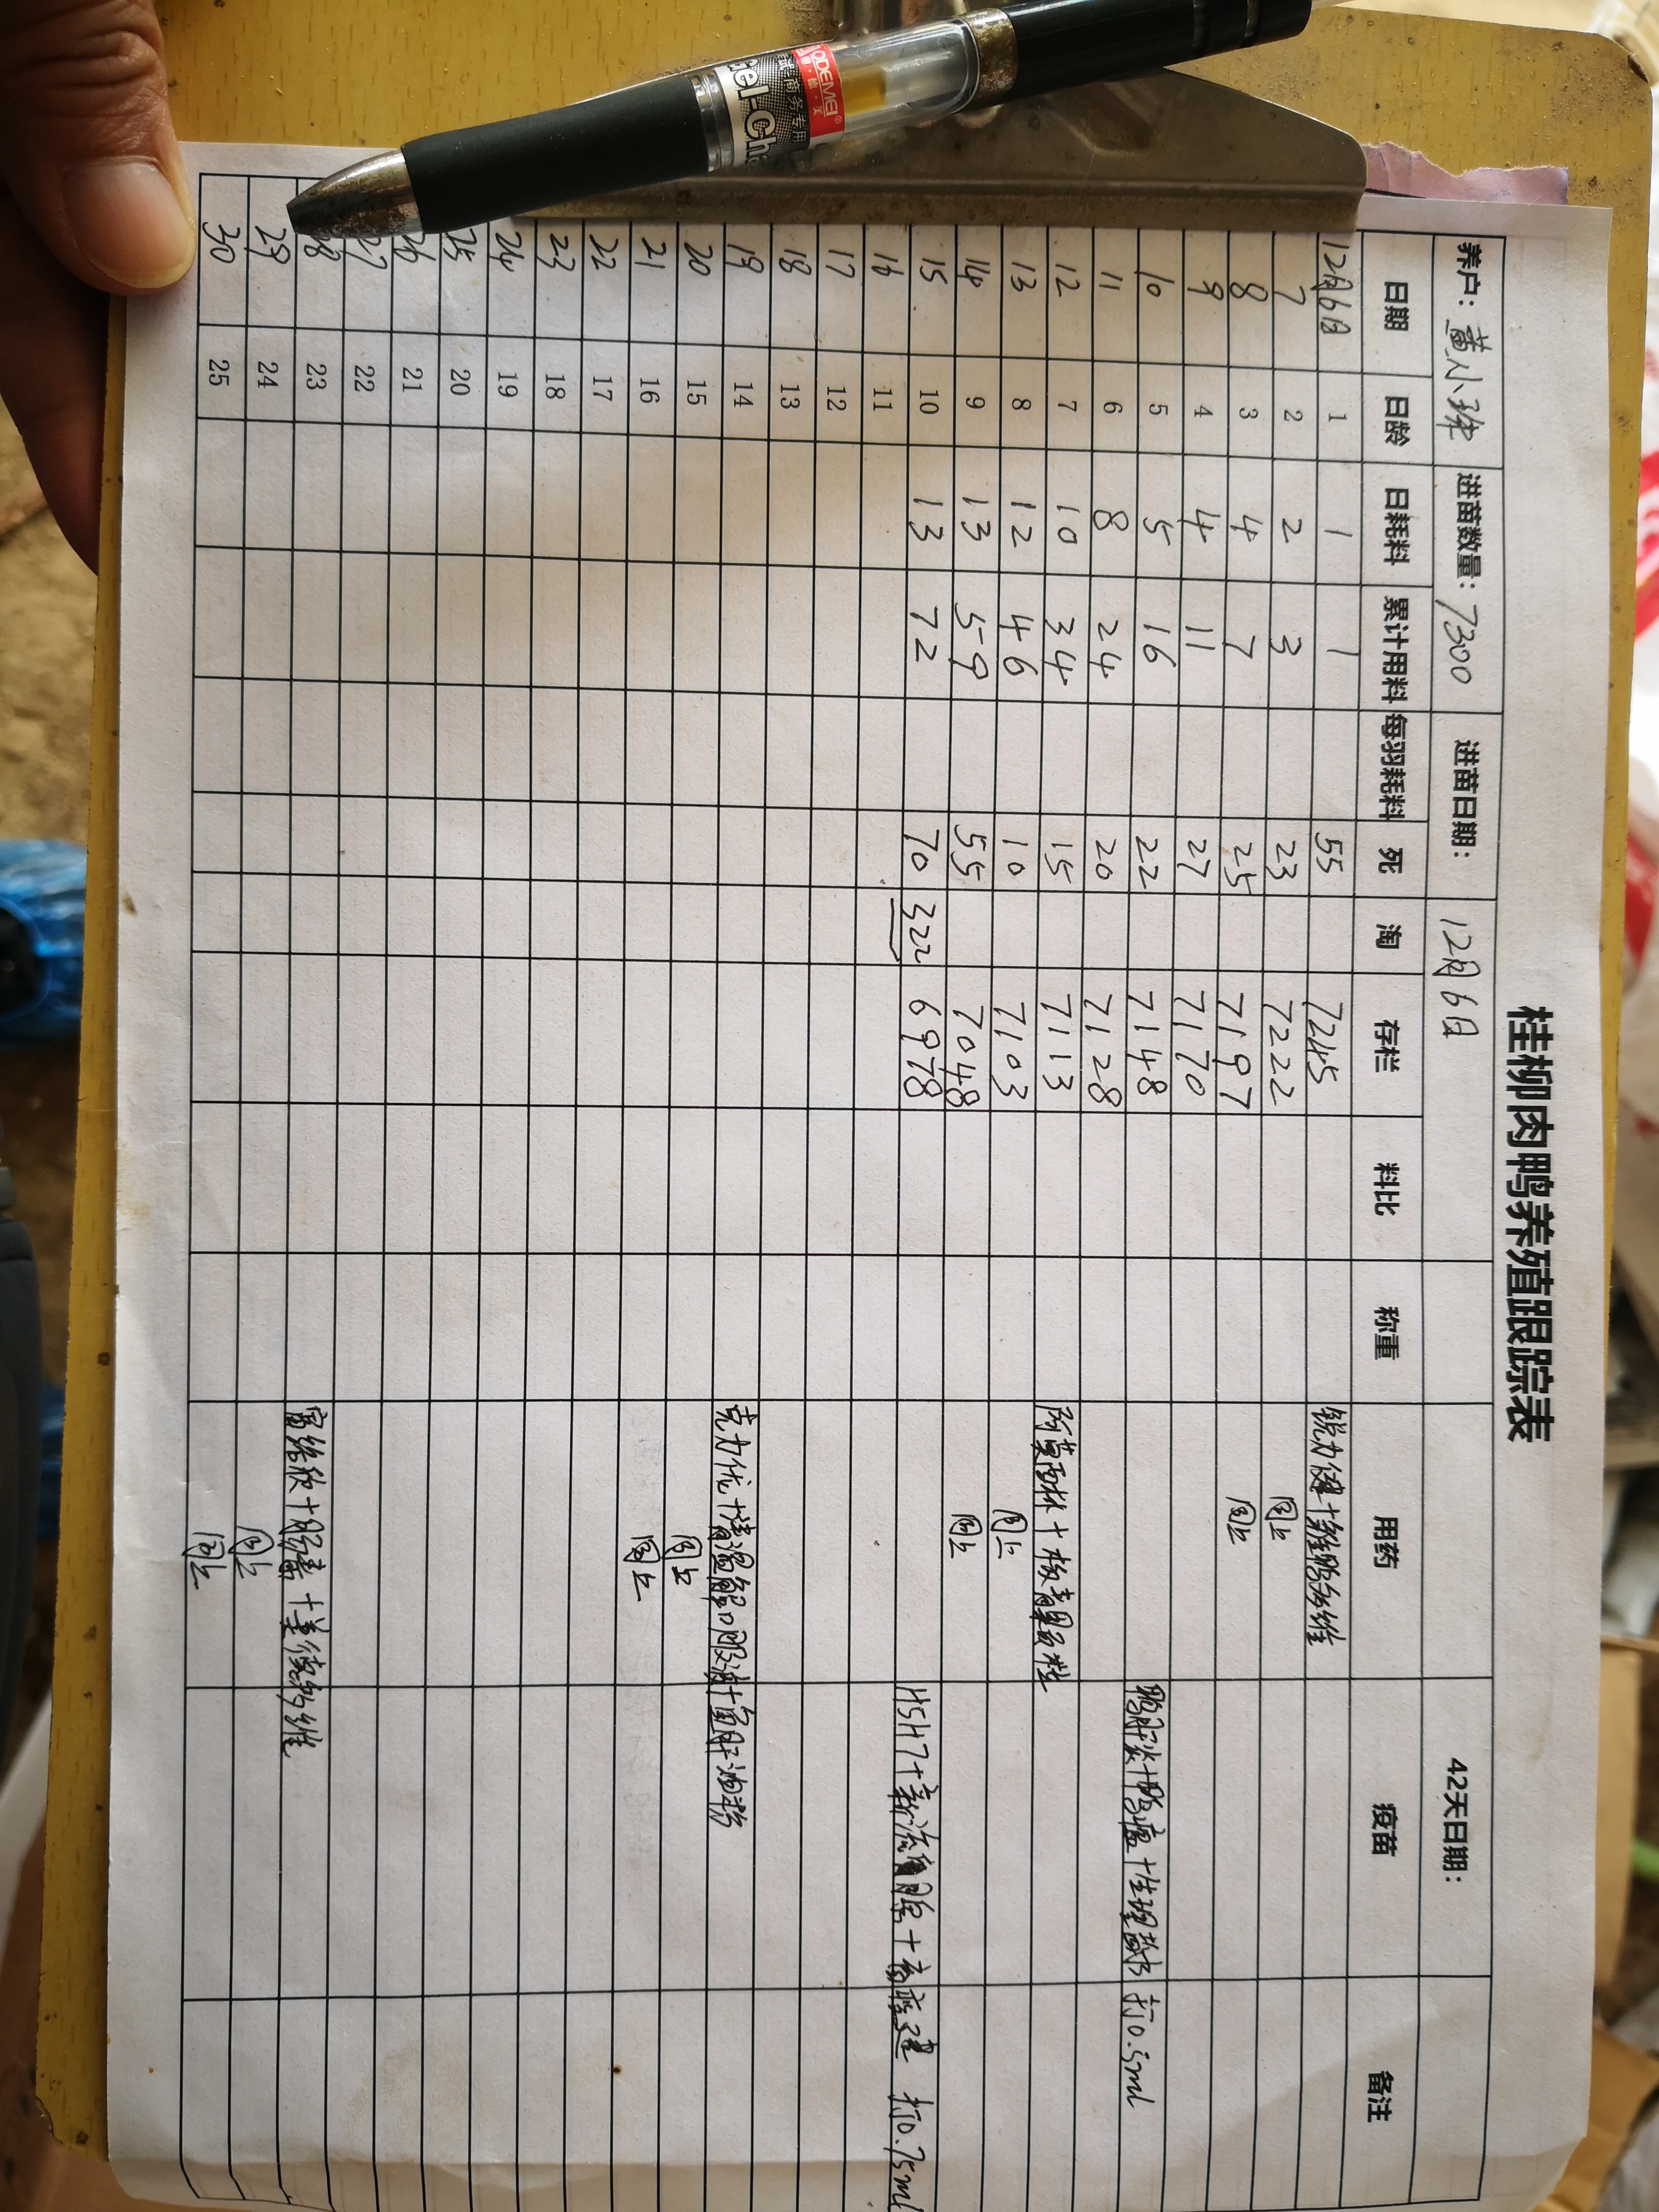 桂柳肉鸭养殖跟踪表
养户: 黄小 进苗数量: 7300 进苗日期: 12月6日 42天日期:
日期 日龄 日耗料 累计用料 每羽耗料 死 淘 存栏 料比 称重 用药 疫苗 备注
12月6日 1 1 1 55 7245 锐力健+雏鸭多维
7 2 2 3 23 7222 同上
8 3 4 7 25 7197 同上
9 4 4 11 27 7170
10 5 5 16 22 7148 鸭肝炎+鸭瘟+生理盐水 打0.5ml
11 6 8 24 20 7128
12 7 10 34 15 7113 阿莫西林+板青颗粒
13 8 12 46 10 7103 同上
14 9 13 59 55 7048 同上
15 10 13 72 70 322 6978 H5H7+新流 + 打0.75ml
16 11
17 12
18 13
19 14 克力优+清瘟解 +鱼肝油粉
20 15 同上
21 16 同上
22 17
23 18
24 19
25 20
26 21
27 22
28 23 富 欣+肠毒 + 多维
29 24 同上
30 25 同上
AODEMEI
奥·德·美
Gel-Ch
试·商务专用